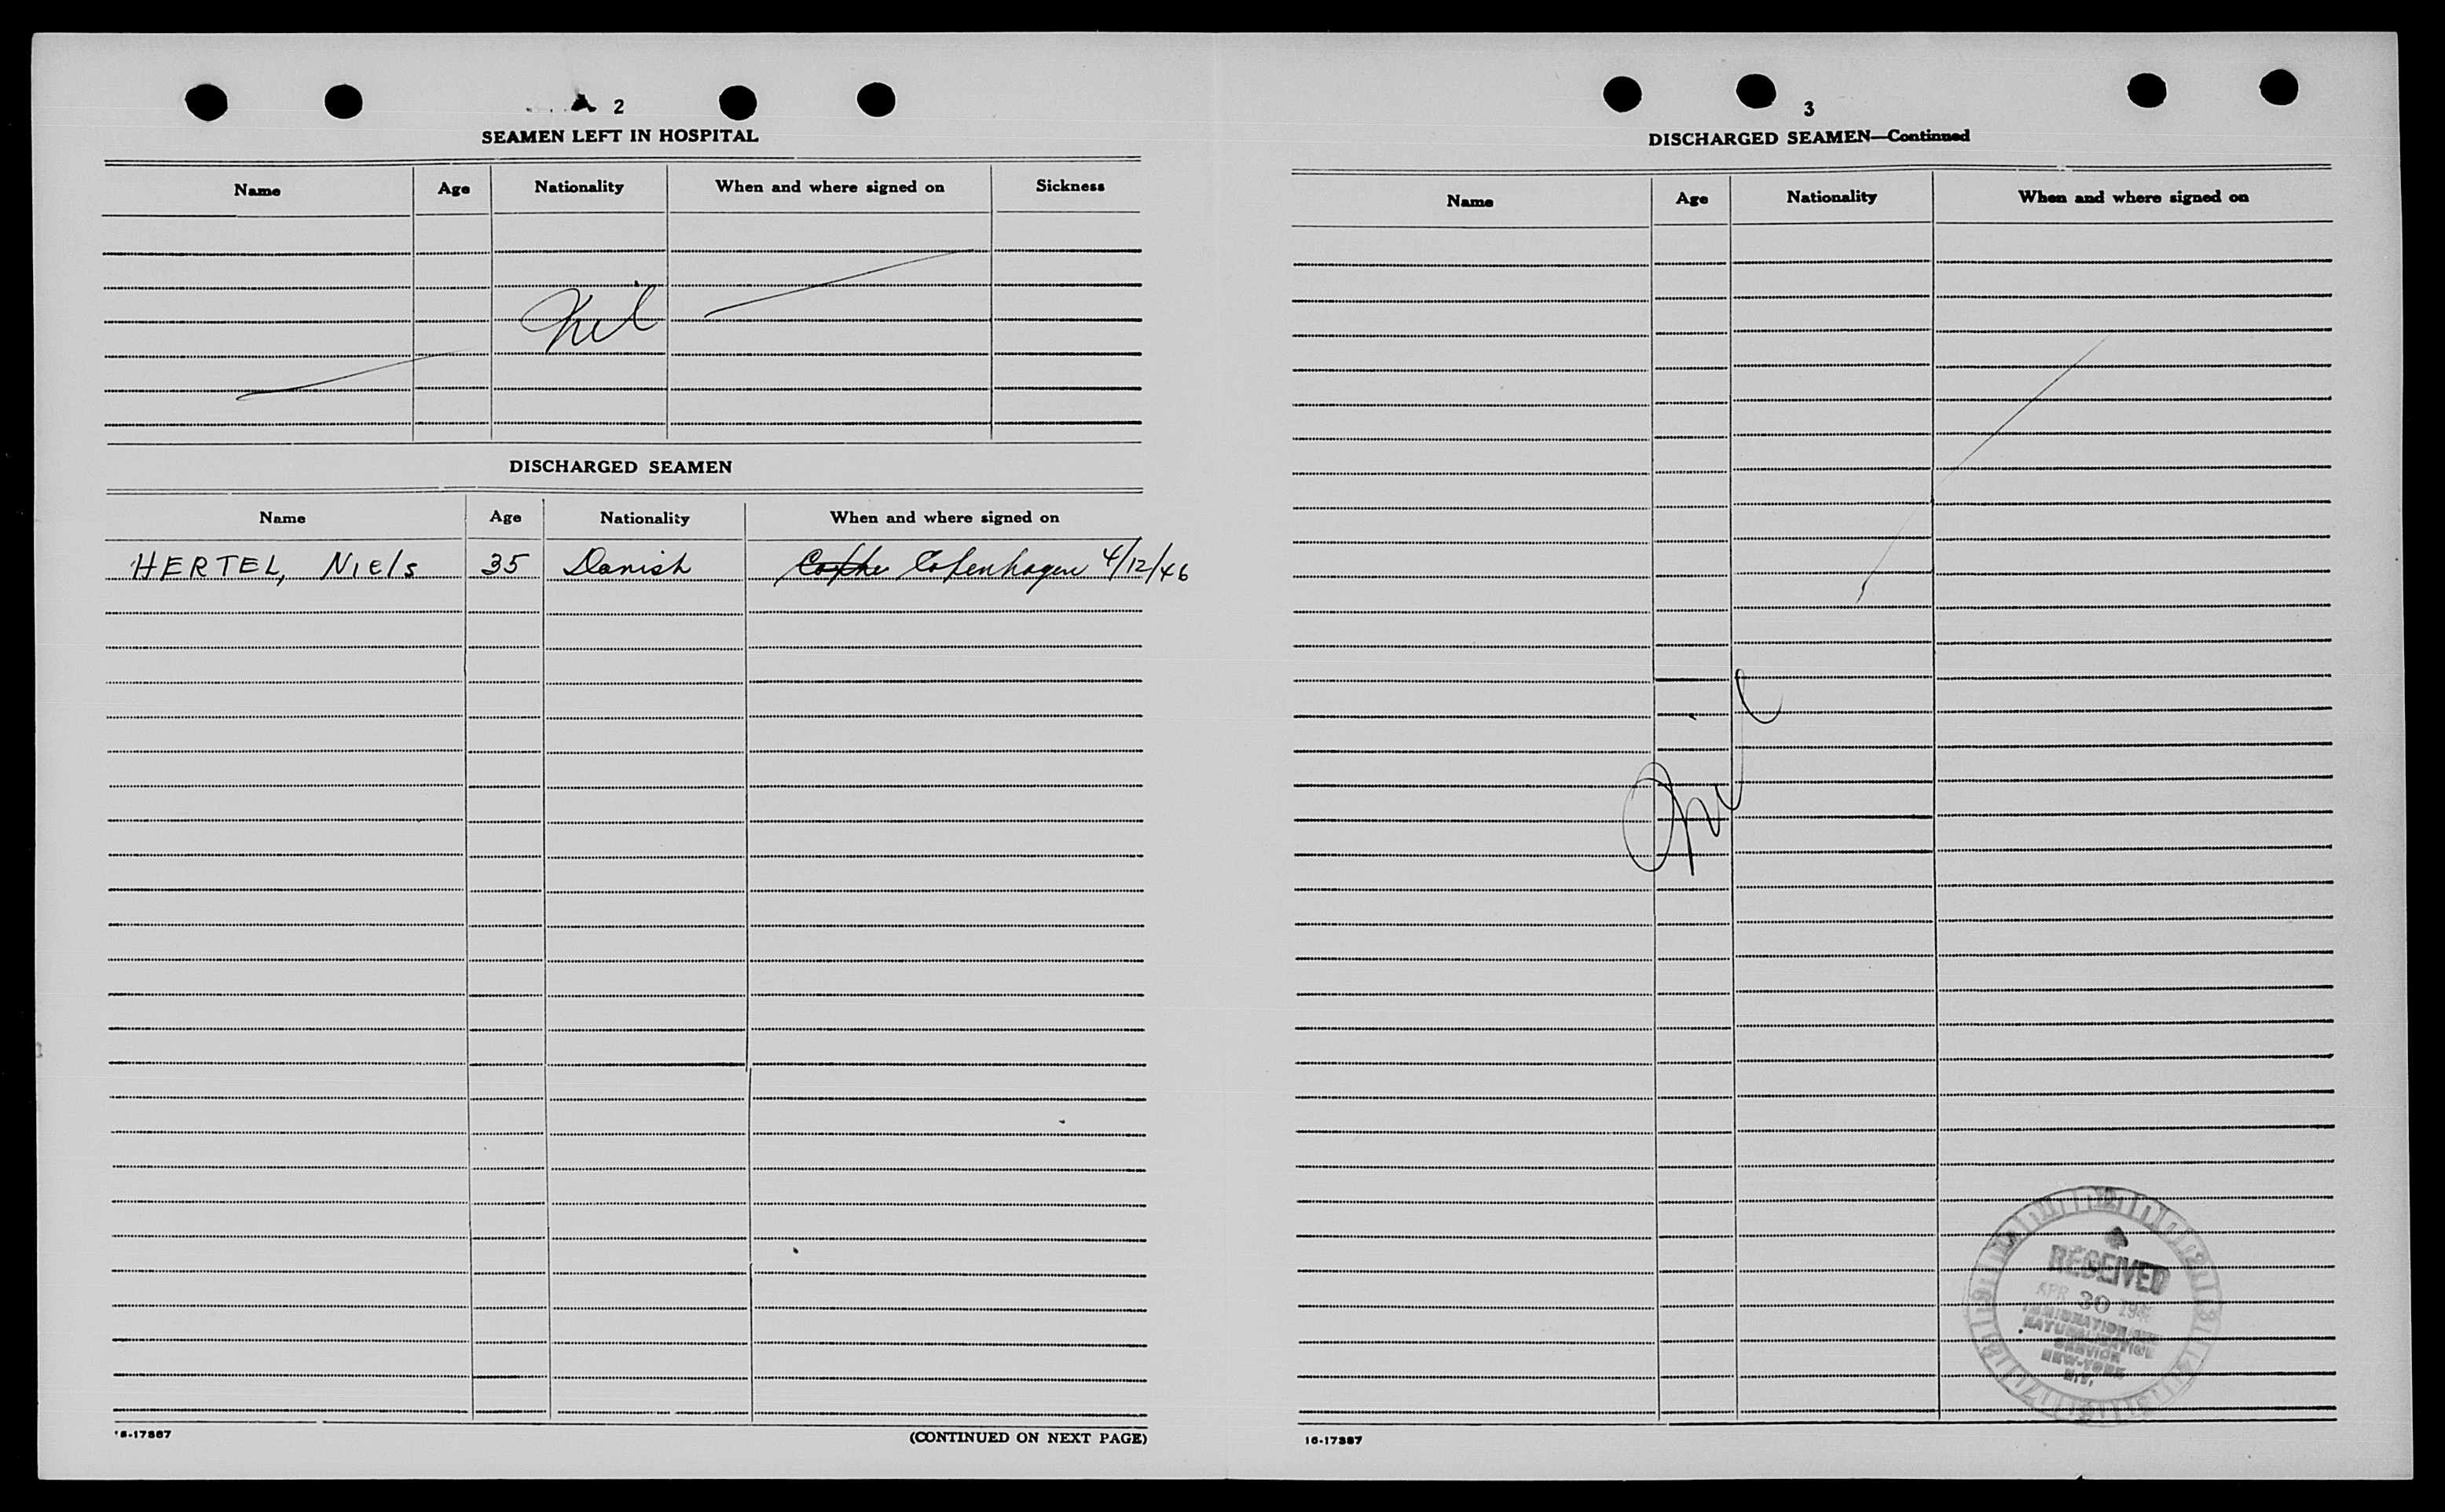 2
SEAMEN LEFT IN HOSPITAL
Name Age Nationality When and where signed on Sickness
Nil
DISCHARGED SEAMEN
Name Age Nationality When and where signed on
HERTEL, Niels 35 Danish Copenhagen 4/12/46
(CONTINUED ON NEXT PAGE)
3
DISCHARGED SEAMEN—Continued
Name Age Nationality When and where signed on
Nil
RECEIVED
APR 30 194
IMMIGRATION AND
NATURALIZATION
SERVICE
NEW-YORK
N.Y.
16-17387